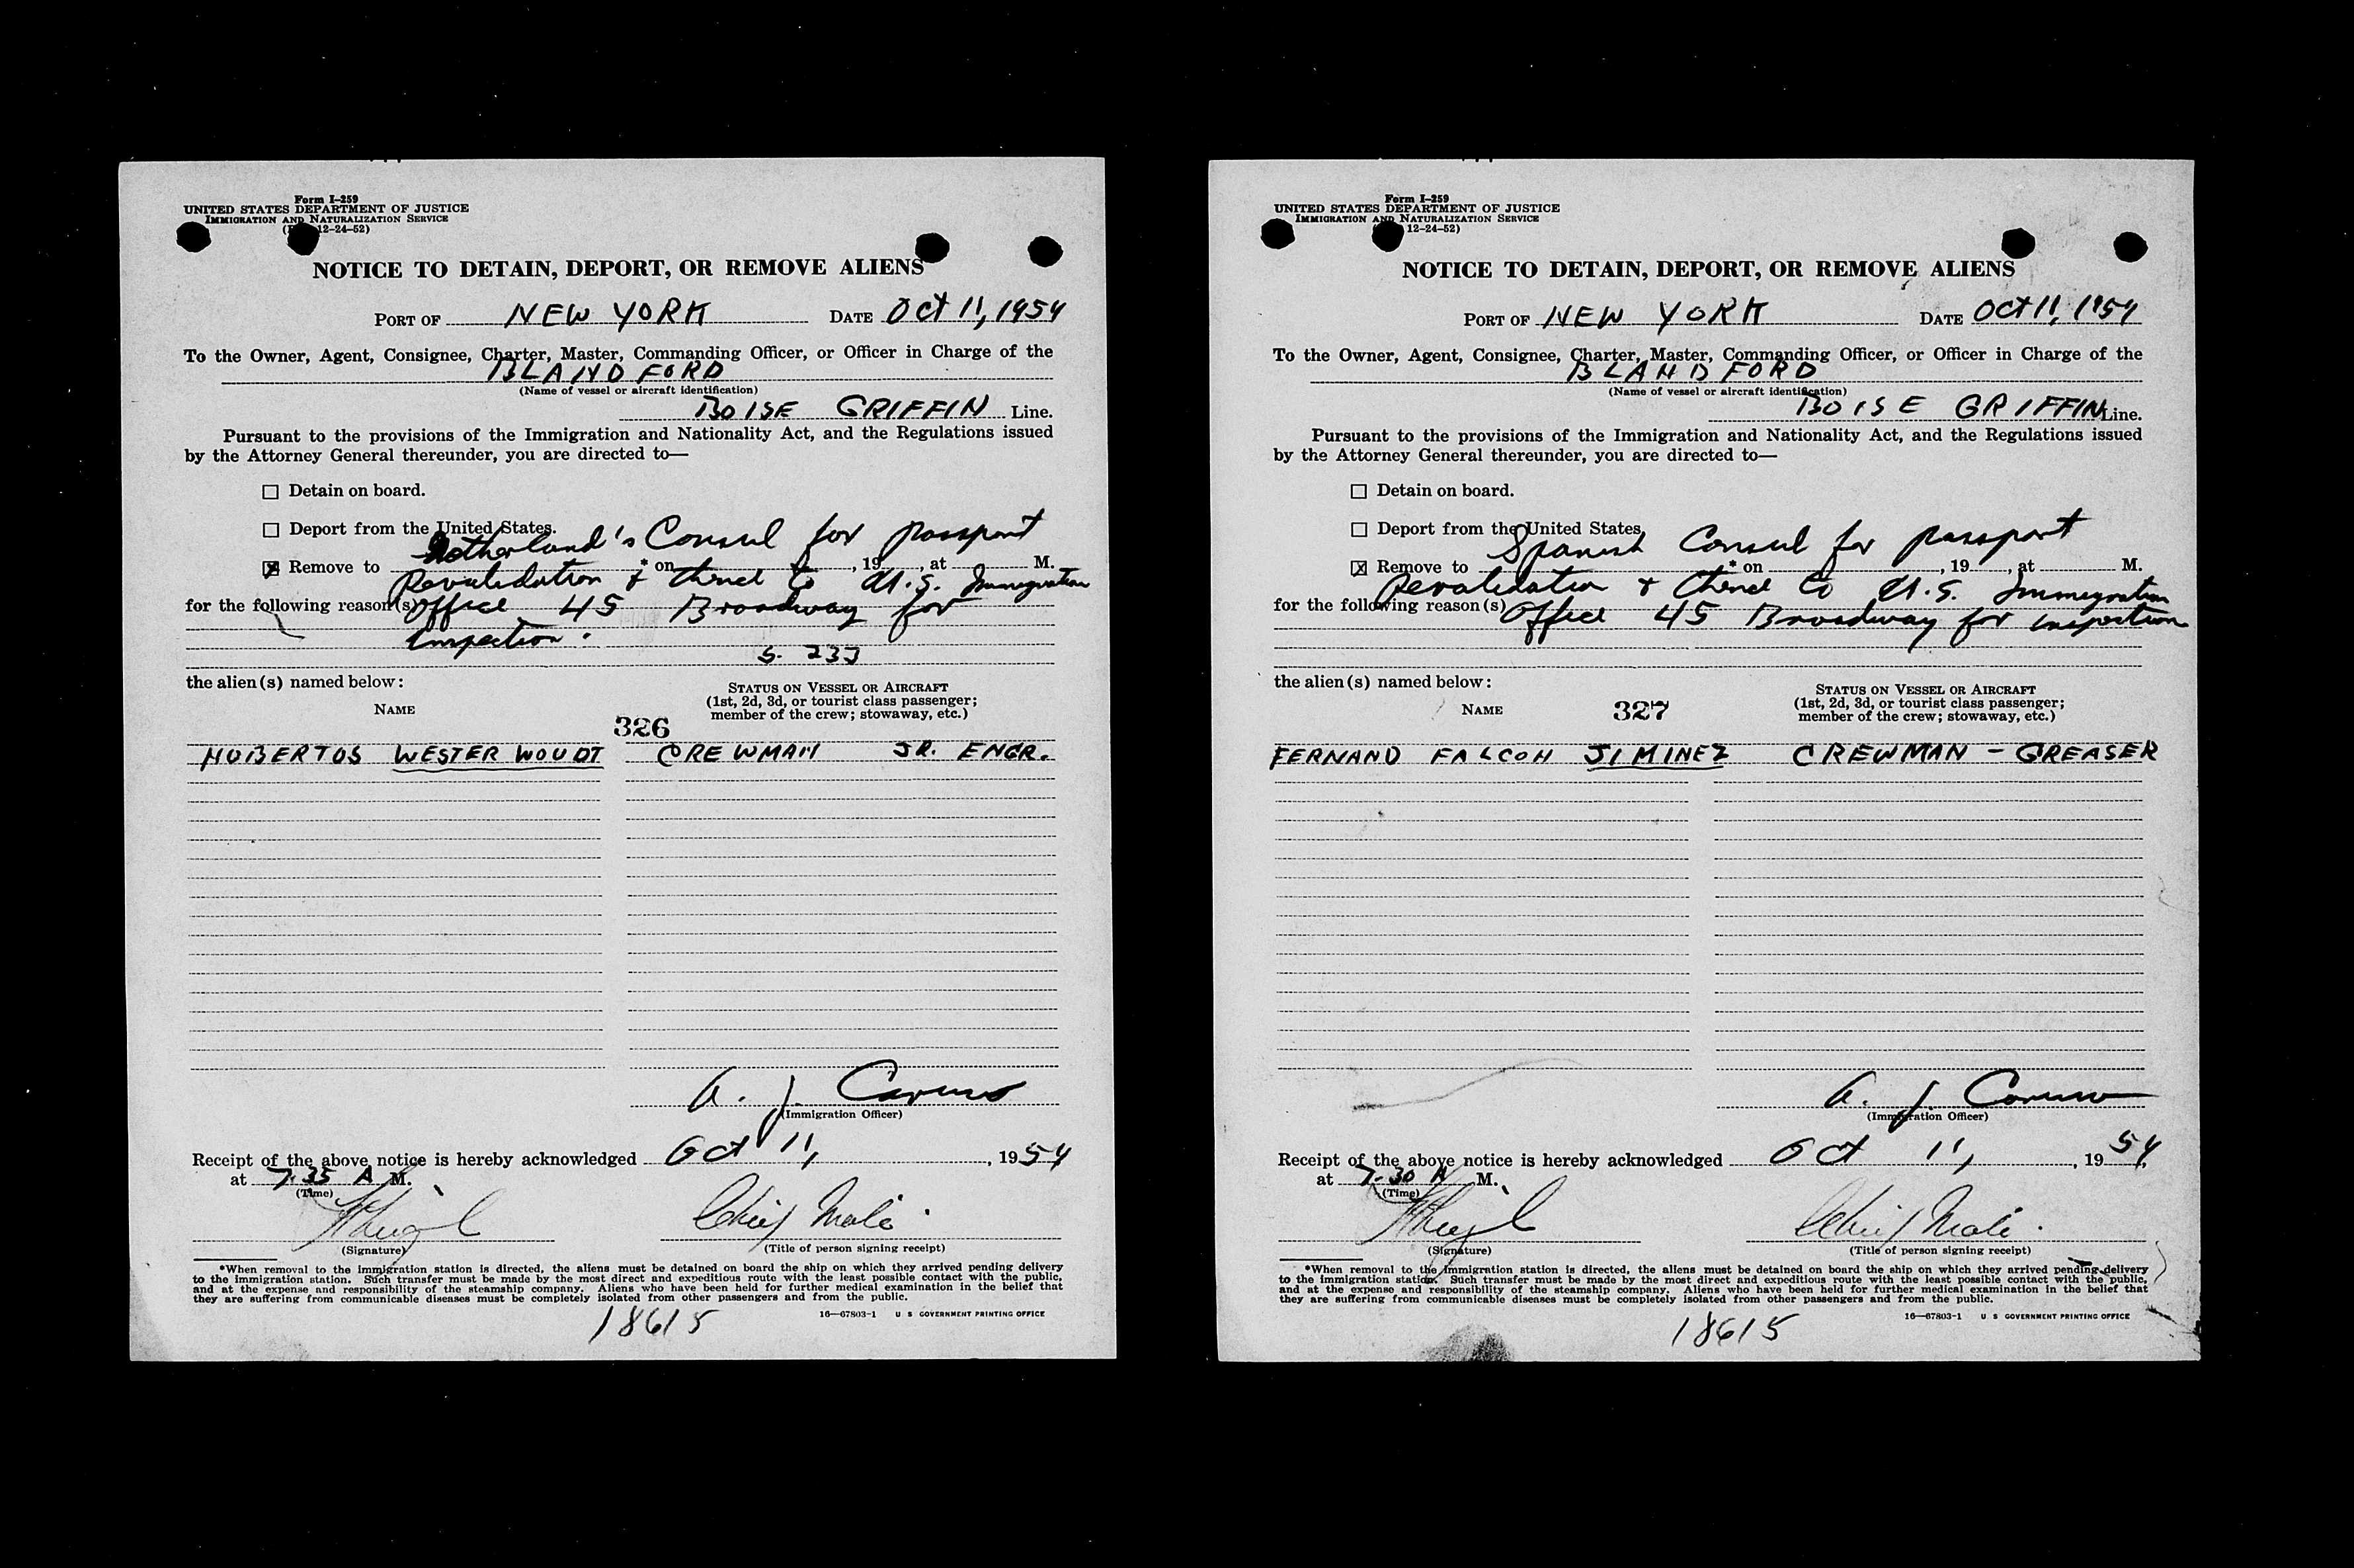 Form I-259
UNITED STATES DEPARTMENT OF JUSTICE
IMMIGRATION AND NATURALIZATION SERVICE
12-24-52)
NOTICE TO DETAIN, DEPORT, OR REMOVE ALIENS
PORT OF NEW YORK DATE Oct 11, 1954
To the Owner, Agent, Consignee, Charter, Master, Commanding Officer, or Officer in Charge of the
BLANDFORD
(Name of vessel or aircraft identification)
BOISE GRIFFIN Line.
Pursuant to the provisions of the Immigration and Nationality Act, and the Regulations issued
by the Attorney General thereunder, you are directed to—
☐ Detain on board.
☐ Deport from the United States.
Netherland's Consul for passport
☒ Remove to * on , 19 , at M.
Revalidation & thence to U.S. Immigration
for the following reason(s) Office 45 Broadway for
Inspection.
S. 233
the alien(s) named below:
NAME
STATUS ON VESSEL OR AIRCRAFT
(1st, 2d, 3d, or tourist class passenger;
member of the crew; stowaway, etc.)
326
HUBERTOS WESTER WOUDT CREWMAN JR. ENGR.
A. J. Caruso
(Immigration Officer)
Receipt of the above notice is hereby acknowledged Oct 11, 1954
at 7.35 A M.
(Time)
Chief Mate.
(Signature) (Title of person signing receipt)
*When removal to the immigration station is directed, the aliens must be detained on board the ship on which they arrived pending delivery
to the immigration station. Such transfer must be made by the most direct and expeditious route with the least possible contact with the public,
and at the expense and responsibility of the steamship company. Aliens who have been held for further medical examination in the belief that
they are suffering from communicable diseases must be completely isolated from other passengers and from the public.
16—67803-1 U S GOVERNMENT PRINTING OFFICE
18615
Form I-259
UNITED STATES DEPARTMENT OF JUSTICE
IMMIGRATION AND NATURALIZATION SERVICE
12-24-52)
NOTICE TO DETAIN, DEPORT, OR REMOVE ALIENS
PORT OF NEW YORK DATE Oct 11, 1954
To the Owner, Agent, Consignee, Charter, Master, Commanding Officer, or Officer in Charge of the
BLANDFORD
(Name of vessel or aircraft identification)
BOISE GRIFFIN Line.
Pursuant to the provisions of the Immigration and Nationality Act, and the Regulations issued
by the Attorney General thereunder, you are directed to—
☐ Detain on board.
☐ Deport from the United States.
Spanish Consul for passport
☒ Remove to * on , 19 , at M.
Revalidation & thence to U.S. Immigration
for the following reason(s) Office 45 Broadway for inspection
the alien(s) named below:
NAME
327
STATUS ON VESSEL OR AIRCRAFT
(1st, 2d, 3d, or tourist class passenger;
member of the crew; stowaway, etc.)
FERNAND FALCON JIMINEZ CREWMAN - GREASER
A. J. Caruso
(Immigration Officer)
Receipt of the above notice is hereby acknowledged Oct 11, 1954
at 7.30 A M.
(Time)
Chief Mate.
(Signature) (Title of person signing receipt)
*When removal to the immigration station is directed, the aliens must be detained on board the ship on which they arrived pending delivery
to the immigration station. Such transfer must be made by the most direct and expeditious route with the least possible contact with the public,
and at the expense and responsibility of the steamship company. Aliens who have been held for further medical examination in the belief that
they are suffering from communicable diseases must be completely isolated from other passengers and from the public.
16—67803-1 U S GOVERNMENT PRINTING OFFICE
18615